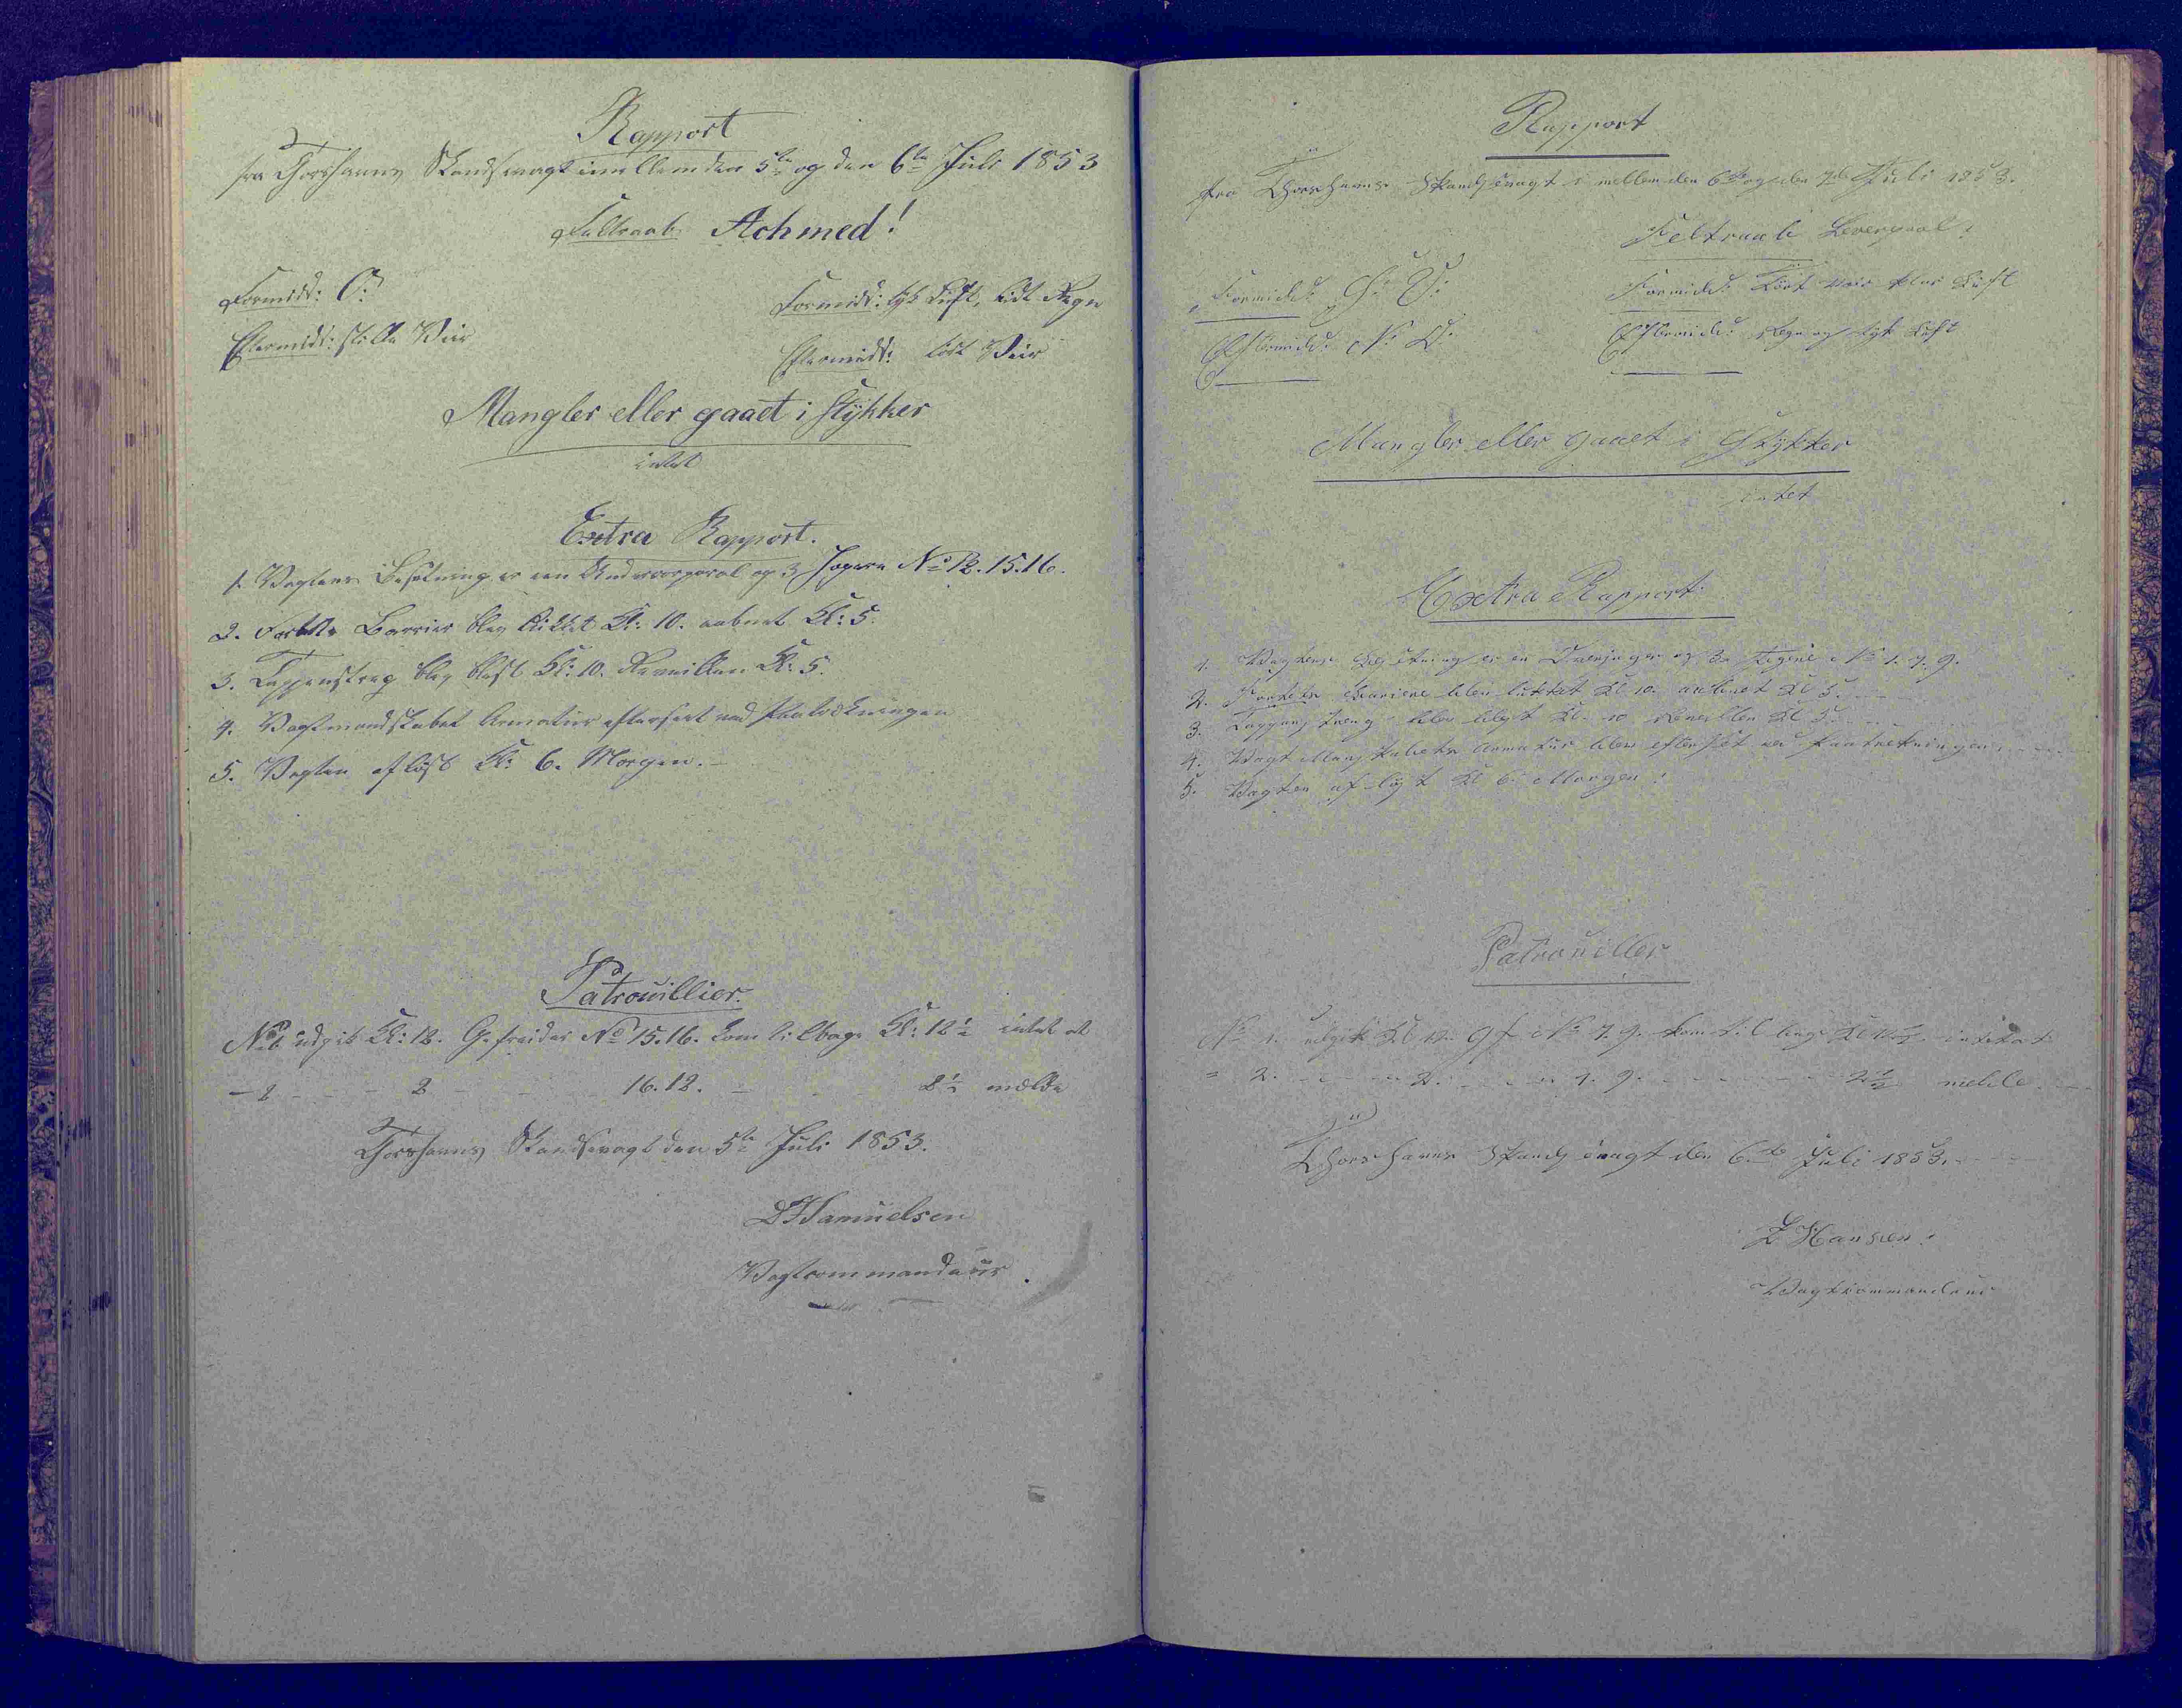 Rapport
fra Thorshavns Skandsevagt imellem den 5te og den 6te Juli 1853
Feltraab Achmed!
Formidd: O:
Formidd: tyk Luft, lidt Regn
Eftermidd: stille Veir
Eftermidd: lidt Veir
Mangler eller gaaet i stykker
intet
Extra Rapport.
1. Vagtens Besetning er een Undercorporal og 3 Jægere No 12. 15. 16.
2. Fortets Barrier blev lukket Kl: 10. aabnet Kl: 5.
3. Tappenstreg blev blæst Kl: 10. Reveillen Kl: 5.
4. Vagtmandskabet Armatur efterseet ved Paatrækningen
5. Vagten afløst Kl: 6. Morgen.
Patrouillier.
No 1. udgik Kl: 12. Gefreider No 15. 16. kom tilbage Kl: 12½ intet at
- 2 - - - 2 - - 16. 12. - - - 2½ melde
Thorshavns Skandsevagt den 5te Juli 1853.
Samuelsen
Vagtcommandeur.
Rapport
fra Thorshavns Skandsevagt i mellem den 6te og den 7de Juli 1853.
Feltraab Leverpool:
Formidd: S: V:
Formidd: Veir klar Luft
Eftermidd: N: O:
Eftermidd: Regn og tyk Luft
Mangler eller gaaet i Stykker
intet
Extra Rapport.
1. Vagtens Besetning er en og 3 Jegere No 1. 7. 9.
2. Fortets Bariere blev lukket Kl 10. aabnet Kl 5.
3. Tappenstreng blev blæst Kl. 10 Reveillen Kl 5.
4. Vagt Mandskabets Armatur blev efterset ved Paatrekningen.
5. Vagten afløst Kl 6. Morgen:
Patrouiller
No 1. udgik Kl 12. Gf No 7. 9. kom tilbage Kl 12½. intet at
= 2. - - - 2. - - - 1. 9. - - - - 2½ melde.
Thorshavns Skandsevagt den 6te Juli 1853.
Hansen.
Vagtkommandeur